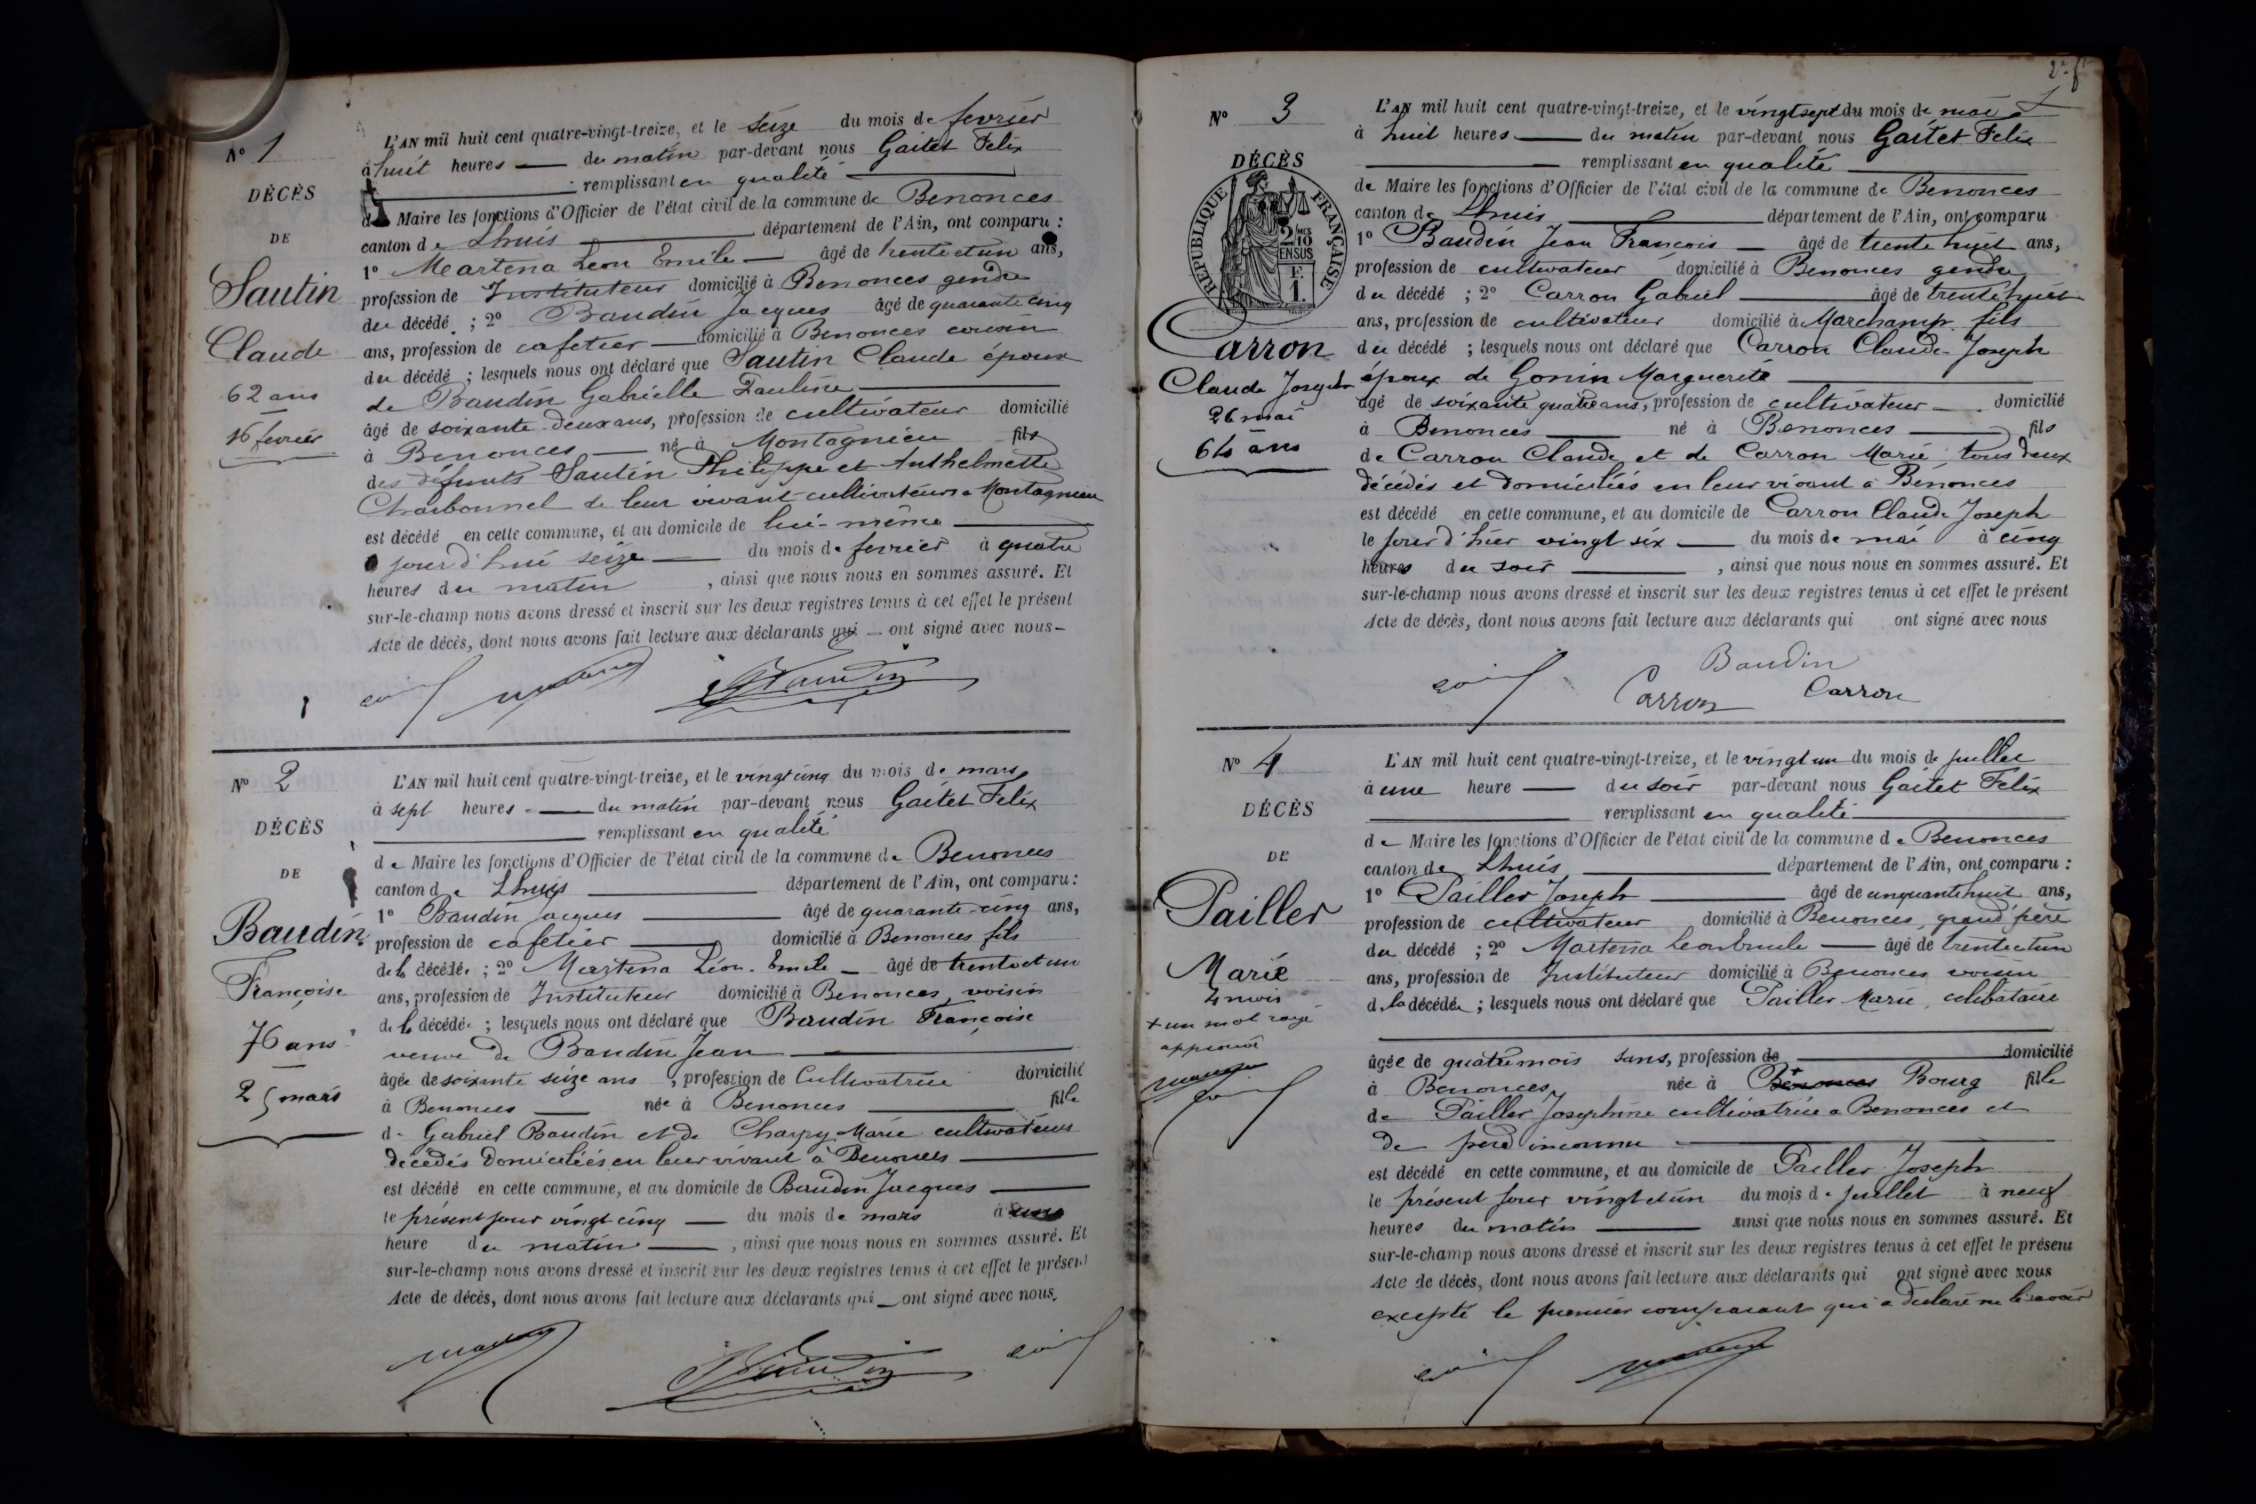 Nº 1
DÉCÈS
DE
Sautin
Claude
62 ans
16 fevrier
L'AN mil huit cent quatre-vingt-treize, et le seize du mois de fevrier
à huit heures du matin par-devant nous Gaitet Felix
remplissant en qualité
de Maire les fonctions d'Officier de l'état civil de la commune de Benonces
canton de Lhuis département de l'Ain, ont comparu :
1º Martena Leon Emile âgé de trente et un ans,
profession de Instituteur domicilié à Benonces gendre
du décédé ; 2º Baudin Jacques âgé de quarante cinq
ans, profession de cafetier domicilié à Benonces cousin
du décédé ; lesquels nous ont déclaré que Sautin Claude époux
de Baudin Gabrielle Pauline
âgé de soixante deux ans, profession de cultivateur domicilié
à Benonces né à Montagnieu fils
des défunts Sautin Philippe et Anthelmette
Charbonnel de leur vivant cultivateurs a Montagnieu
est décédé en cette commune, et au domicile de lui-même
jourd'hui seize du mois de fevrier à quatre
heures du matin , ainsi que nous nous en sommes assuré. Et
sur-le-champ nous avons dressé et inscrit sur les deux registres tenus à cet effet le présent
Acte de décès, dont nous avons fait lecture aux déclarants qui ont signé avec nous
Baudin
Nº 2
DÉCÈS
DE
Baudin
Françoise
76 ans
25 mars
L'AN mil huit cent quatre-vingt-treize, et le vingt cinq du mois de mars
à sept heures du matin par-devant nous Gaitet Felix
remplissant en qualité
de Maire les fonctions d'Officier de l'état civil de la commune de Benonces
canton de Lhuis département de l'Ain, ont comparu :
1º Baudin Jacques âgé de quarante-cinq ans,
profession de cafetier domicilié à Benonces fils
de la décédée ; 2º Martena Léon Emile âgé de trente et un
ans, profession de Instituteur domicilié à Benonces, voisin
de la décédée ; lesquels nous ont déclaré que Baudin Françoise
veuve de Baudin Jean
âgée de soixante seize ans , profession de Cultivatrice domicilié
à Benonces née à Benonces fille
de Gabriel Baudin et de Charpy Marie cultivateurs
décédés domiciliés en leur vivant à Benonces
est décédé en cette commune, et au domicile de Baudin Jacques
le présent jour vingt cinq du mois de mars à une
heure du matin , ainsi que nous nous en sommes assuré. Et
sur-le-champ nous avons dressé et inscrit sur les deux registres tenus à cet effet le présent
Acte de décès, dont nous avons fait lecture aux déclarants qui ont signé avec nous.
Baudin
Nº 3
DÉCÈS
RÉPUBLIQUE FRANÇAISE
2 10 EN SUS
F. 1.
Carron
Claude Joseph
26 mai
64 ans
L'AN mil huit cent quatre-vingt-treize, et le vingt sept du mois de mai
à huit heures du matin par-devant nous Gaitet Felix
remplissant en qualité
de Maire les fonctions d'Officier de l'état civil de la commune de Benonces
canton de Lhuis département de l'Ain, ont comparu
1º Baudin Jean François âgé de trente huit ans,
profession de cultivateur domicilié à Benonces gendre
du décédé ; 2º Carron Gabriel âgé de trente huit
ans, profession de cultivateur domicilié à Marchamp fils
du décédé ; lesquels nous ont déclaré que Carron Claude Joseph
époux de Gonin Marguerite
âgé de soixante quatre ans, profession de cultivateur domicilié
à Benonces né à Benonces fils
de Carron Claude et de Carron Marie tous deux
décédés et domiciliés en leur vivant à Benonces
est décédé en cette commune, et au domicile de Carron Claude Joseph
le jour d'hier vingt six du mois de mai à cinq
heures du soir , ainsi que nous nous en sommes assuré. Et
sur-le-champ nous avons dressé et inscrit sur les deux registres tenus à cet effet le présent
Acte de décès, dont nous avons fait lecture aux déclarants qui ont signé avec nous
Baudin
Carron Carron
Nº 4
DÉCÈS
DE
Pailler
Marie
4 mois
+ un mot rayé
approuvé
L'AN mil huit cent quatre-vingt-treize, et le vingt un du mois de juillet
à une heure du soir par-devant nous Gaitet Felix
remplissant en qualité
de Maire les fonctions d'Officier de l'état civil de la commune de Benonces
canton de Lhuis département de l'Ain, ont comparu :
1º Pailler Joseph âgé de cinquante huit ans,
profession de cultivateur domicilié à Benonces, grand'père
du décédé ; 2º Martena Leon Emile âgé de trente et un
ans, profession de Instituteur domicilié à Benonces voisin
de la décédée ; lesquels nous ont déclaré que Pailler Marie, celibataire
âgée de quatre mois sans, profession de domicilié
à Benonces, née à + Benonces Bourg fille
de Pailler Josephine cultivatrice a Benonces et
de père inconnu
est décédé en cette commune, et au domicile de Pailler Joseph
le présent jour vingt et un du mois de juillet à neuf
heures du matin ainsi que nous nous en sommes assuré. Et
sur-le-champ nous avons dressé et inscrit sur les deux registres tenus à cet effet le présent
Acte de décès, dont nous avons fait lecture aux déclarants qui ont signé avec nous
excepté le premier comparant qui a déclaré ne le savoir